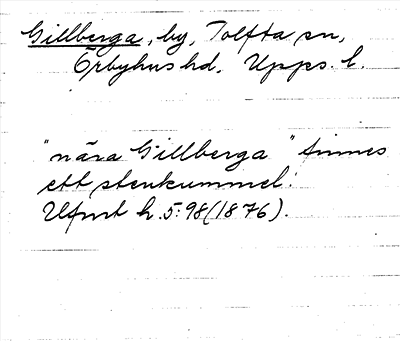 Gillberga, by, Tolfta sn,
Örbyhus hd, Upps. l.
"nära Gillberga" finnes
ett stenkummel.
Ufmt h. 5:98 (1876).